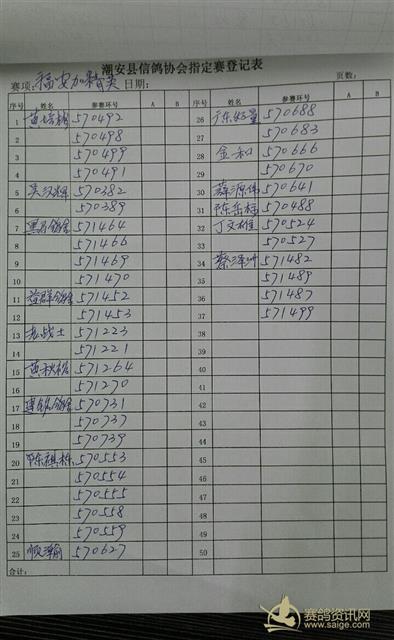 潮安县信鸽协会指定赛登记表
赛项:福安加精英 日期: 页数:
序号 姓名 参赛环号 A B 序号 姓名 参赛环号 A B
1 黄培楠 570492 26 570688
2 570498 27 570683
3 570499 28 金和 570666
4 570491 29 570670
5 吴汉辉 570382 30 薛源伟 570641
6 570389 31 陈岳标 570488
7 571464 32 丁文雄 570524
8 571466 33 570527
9 571469 34 蔡泽州 571482
10 571470 35 571489
11 益群鸽舍 571452 36 571487
12 571453 37 571499
13 老战士 571223 38
14 571221 39
15 黄秋松 571264 40
16 571270 41
17 570731 42
18 570737 43
19 570739 44
20 陈祺栋 570553 45
21 570554 46
22 570555 47
23 570558 48
24 570559 49
25 顺瀚 570627 50
合计:
赛鸽资讯网
www.saige.com